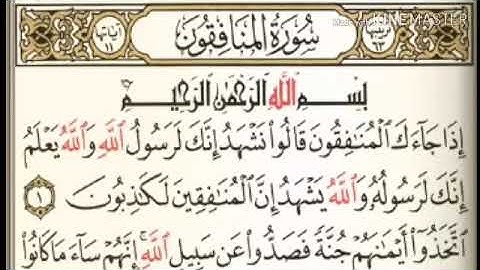 ترتيبها ٦٣
سُورَةُ الْمُنَافِقُونَ
آياتها ١١
KINEMASTER
بِسْمِ اللَّهِ الرَّحْمَٰنِ الرَّحِيمِ
إِذَا جَآءَكَ ٱلْمُنَٰفِقُونَ قَالُوا۟ نَشْهَدُ إِنَّكَ لَرَسُولُ ٱللَّهِ وَٱللَّهُ يَعْلَمُ
إِنَّكَ لَرَسُولُهُۥ وَٱللَّهُ يَشْهَدُ إِنَّ ٱلْمُنَٰفِقِينَ لَكَٰذِبُونَ ١
ٱتَّخَذُوٓا۟ أَيْمَٰنَهُمْ جُنَّةً فَصَدُّوا۟ عَن سَبِيلِ ٱللَّهِ ۚ إِنَّهُمْ سَآءَ مَا كَانُوا۟